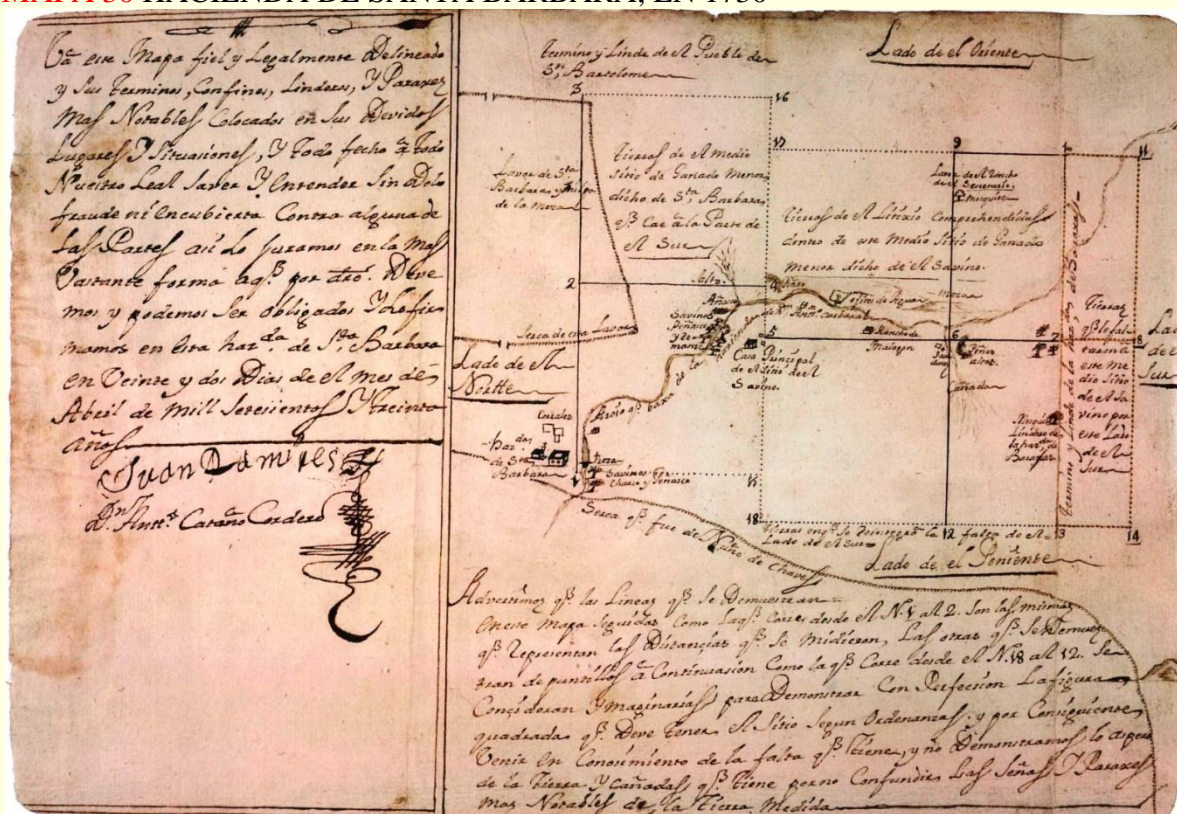 MAPA 50 HACIENDA DE SANTA BARBARA, EN 1730
Va este Mapa fiel y Legalmente Delineado
y Sus terminos, Confines, Linderos, Y Paraxes
Mas Notables Colocados en Sus Devidos
Lugares Y Situasiones, Y todo fecho a todo
Nuestro Leal Saver Y Entender Sin Dolo
fraude ni Encubierta Contra alguna de
Las Partes asi lo Juramos en la Mas
Vastante forma aqe. por dro. Deve
mos y podemos Ser obligados Y lo fir
mamos en Esta hazda. de Sta. Barbara
en Veinte y dos Dias de el Mes de
Abril de Mill Setesientos Y treinta
años
Juan Ramires
Dn. Antto. Cataño Cordero
termino y Linde de el Pueblo de
Sn. Bartolome
Lado de el Oriente
3
16
17
9
11
Lavor de Sta.
Barbara
de la mora
tierras de el medio
sitio de Ganado Menor
dicho de Sta. Barbara
qe. Cae a la Parte de
el Sur
Tierras de el Litixio Comprehendidas
dentro de este Medio Sitio de Ganado
menor dicho de el Savino.
Mesquite
2
4
Salto
Savinos
5
6
7
8
Rancho de
Casa Prinsipal
de el Sitio de el
Savino.
Cañada
Serca de esta Lavor
Lado de el
Nortte
Lado
de el
Sur
Tierras
este me
dio Sitio
de el Sa
vino por
este Lado
de el
Sur
termino y Linde de la hazda. de
Corrales
hazda.
de Sta.
Barbara
1
15
18
12
13
14
Serca qe. fue de
de Chaves
Tierras en qe. se
la falta de el
Lado de el Sur
Lado de el Poniente
Advertimos qe. las Lineas qe. Se Demuestran
en este Mapa Seguidas Como la qe. Corre desde el N. 1 al 2. Son las mismas
qe. Representan las Distancias qe. Se Midieron, Las otras qe. Se Demues
tran de puntillos a Continuasion Como la qe. Corre desde el N. 18 al 12. Se
Consideran Ymaginarias para Demonstrar Con Perfecion La figura
quadrada qe. Deve tener el Sitio Segun Ordenansas. y por Consiguiente
Venir en Conosimiento de la falta qe. tiene, y no Demonstramos lo aspero
de la Tierra Y Cañadas qe. tiene por no Confundir Las Señas Y Paraxes
mas Notables de la Tierra Medida